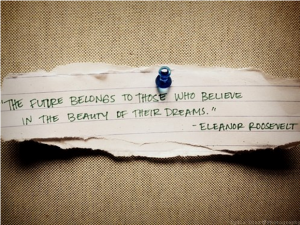 "THE FUTURE BELONGS TO THOSE WHO BELIEVE
IN THE BEAUTY OF THEIR DREAMS."
- ELEANOR ROOSEVELT